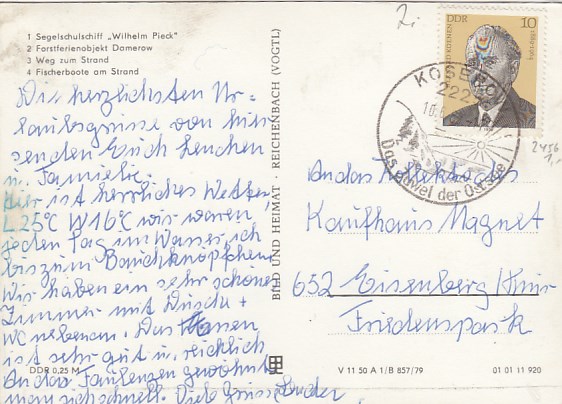 1 Segelschulschiff „Wilhelm Pieck"
2 Forstferienobjekt Damerow
3 Weg zum Strand
4 Fischerboote am Strand
Die herzlichsten Ur-
laubsgrüsse von hier
senden Euch Lenchen
u. Familie.
Hier ist herrliches Wetter,
L 25°C W 16°C wir waren
jeden Tag im Wasser, ich
bis zum Bauchknöpfchen
Wir haben ein sehr schönes
Zimmer mit Dusche +
WC nebenan. Das Essen
ist sehr gut u. reichlich
An das Faulenzen gewöhnt
man sich schnell. Viele Grüsse
DDR 0,25 M
BILD UND HEIMAT · REICHENBACH (VOGTL)
DDR 10
KOENEN
1886-1963
KOSEROW
222
Das Juwel der Ostsee
2456
1,-
An das Kollektiv des
Kaufhaus Magnet
652 Eisenberg
Friedenspark
V 11 50 A 1/B 857/79
01 01 11 920